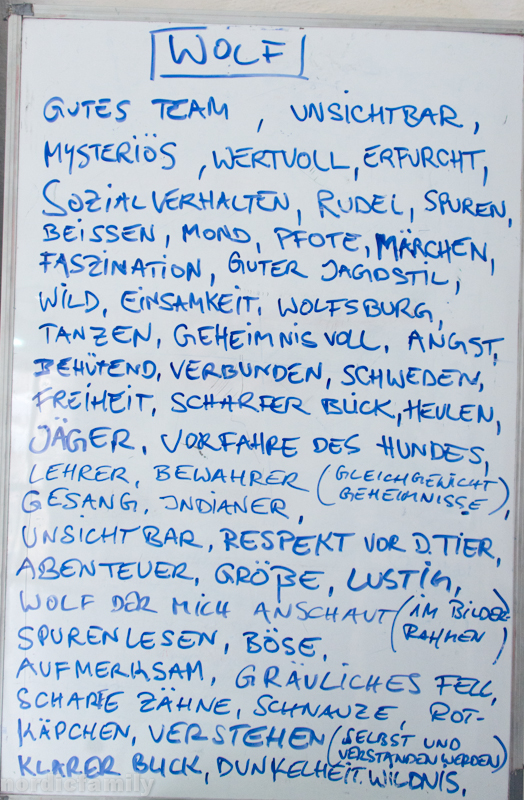 WOLF
GUTES TEAM, UNSICHTBAR,
MYSTERIÖS, WERTVOLL, ERFURCHT,
SOZIALVERHALTEN, RUDEL, SPUREN,
BEISSEN, MOND, PFOTE, MÄRCHEN,
FASZINATION, GUTER JAGDSTIL,
WILD, EINSAMKEIT, WOLFSBURG,
TANZEN, GEHEIMNISVOLL, ANGST,
BEHÜTEND, VERBUNDEN, SCHWEDEN,
FREIHEIT, SCHARFER BLICK, HEULEN,
JÄGER, VORFAHRE DES HUNDES,
LEHRER, BEWAHRER (GLEICHGEWICHT
GEHEIMNISSE),
GESANG, INDIANER,
UNSICHTBAR, RESPEKT VOR D. TIER,
ABENTEUER, GRÖßE, LUSTIG,
WOLF DER MICH ANSCHAUT (IM BILDER-
RAHMEN)
SPURENLESEN, BÖSE,
AUFMERKSAM, GRÄULICHES FELL,
SCHARFE ZÄHNE, SCHNAUZE, ROT-
KÄPCHEN, VERSTEHEN (SELBST UND
VERSTANDEN WERDEN)
KLARER BLICK, DUNKELHEIT, WILDNIS,
nordicfamily